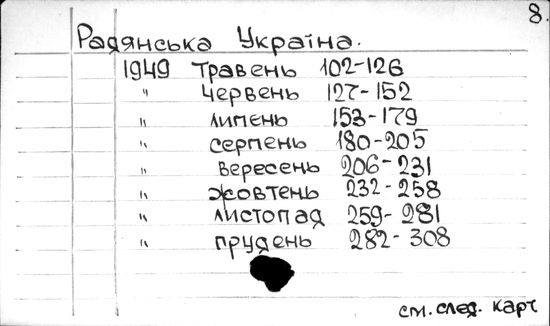 8.
Радянська Україна.
1949 травень 102-126
" червень 127-152
" липень 153-179
" серпень 180-205
" вересень 206-231
" жовтень 232-258
" листопад 259-281
" грудень 282-308
см. след. карт